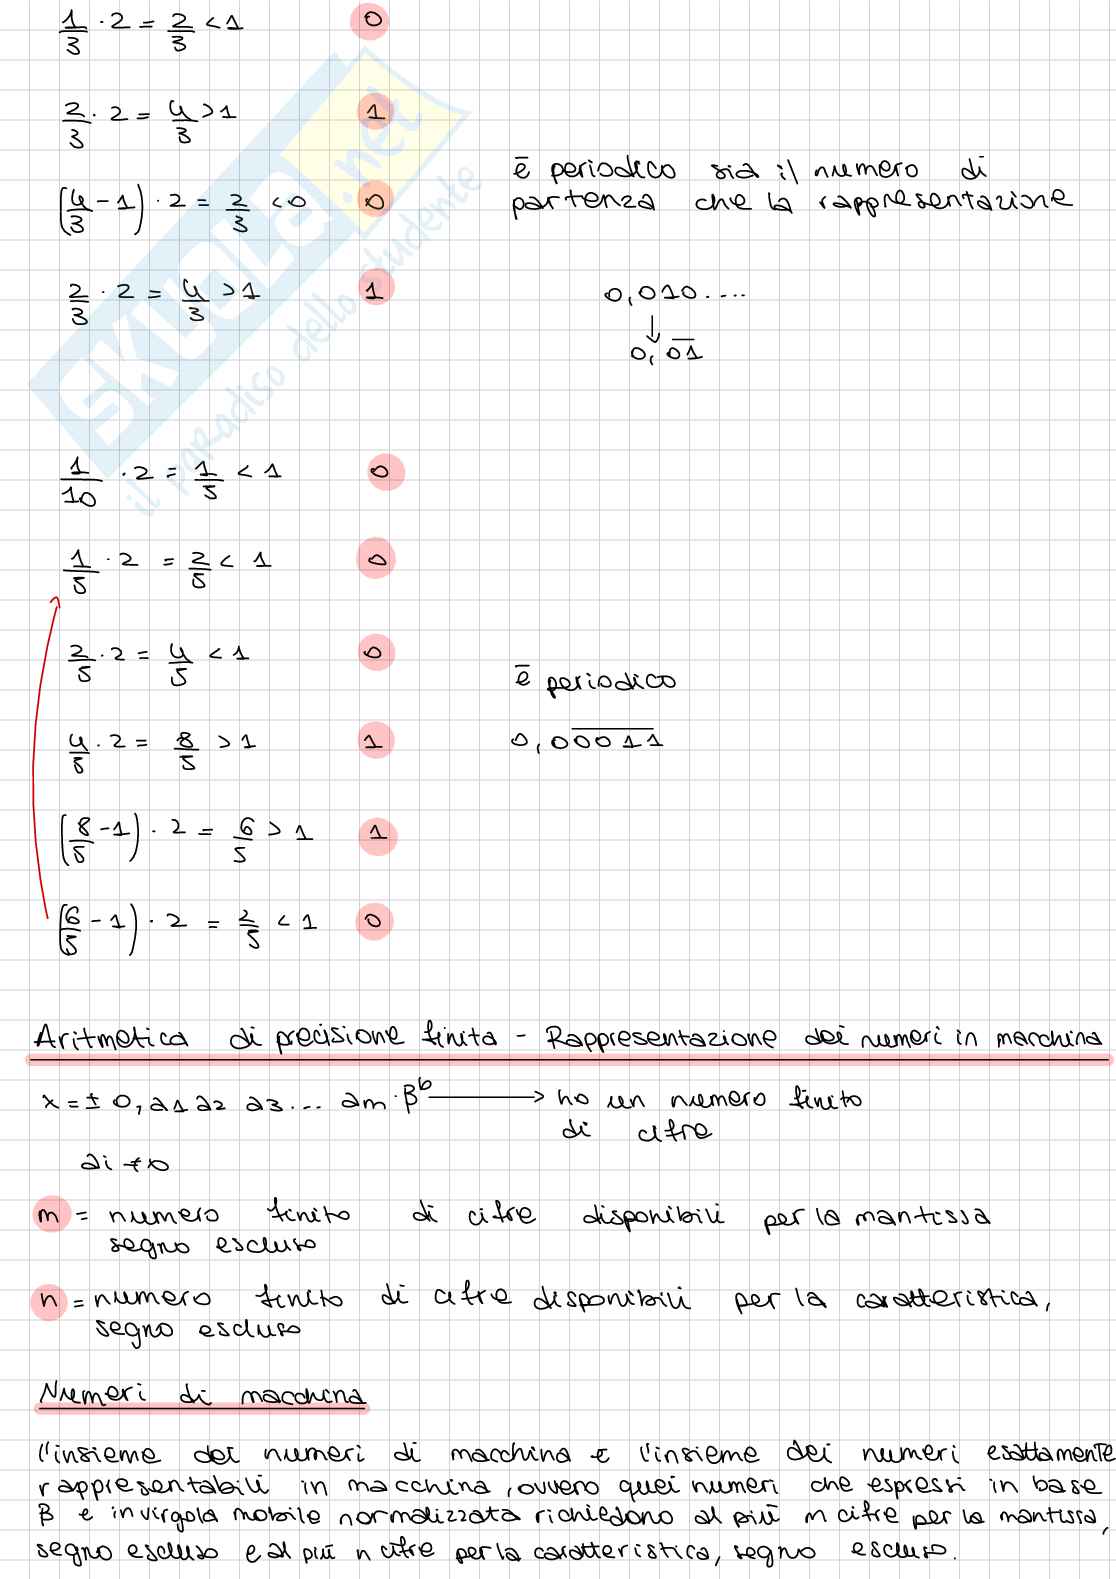 1/3 · 2 = 2/3 < 1 0
2/3 · 2 = 4/3 > 1 1
(4/3 - 1) · 2 = 2/3 < 0 0
2/3 · 2 = 4/3 > 1 1
è periodico sia il numero di
partenza che la rappresentazione
0,010....
↓
0,0̅1̅
1/10 · 2 = 1/5 < 1 0
1/5 · 2 = 2/5 < 1 0
2/5 · 2 = 4/5 < 1 0
4/5 · 2 = 8/5 > 1 1
(8/5 - 1) · 2 = 6/5 > 1 1
(6/5 - 1) · 2 = 2/5 < 1 0
è periodico
0,00̅0̅1̅1̅
Aritmetica di precisione finita - Rappresentazione dei numeri in macchina
x = ± 0, a1 a2 a3 ... am · β^b → ho un numero finito
di cifre
ai ≠ 0
m = numero finito di cifre disponibili per la mantissa
segno escluso
n = numero finito di cifre disponibili per la caratteristica,
segno escluso
Numeri di macchina
l'insieme dei numeri di macchina è l'insieme dei numeri esattamente
rappresentabili in macchina, ovvero quei numeri che espressi in base
β e in virgola mobile normalizzata richiedono al più m cifre per la mantissa,
segno escluso e al più n cifre per la caratteristica, segno escluso.
SKUOLA.net
il paradiso dello studente